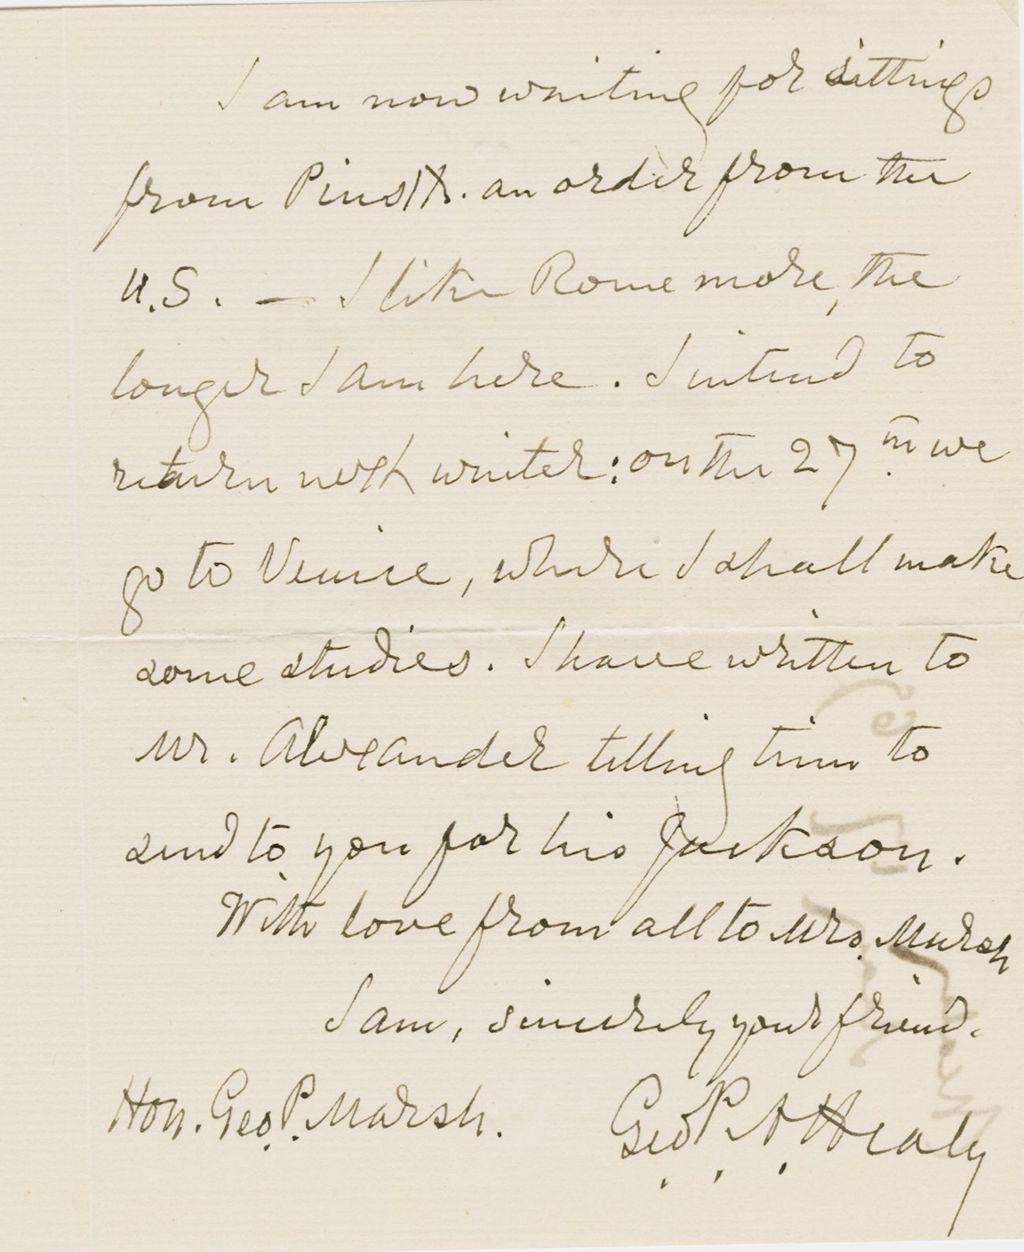 I am now waiting for sittings
from Pius IX. an order from the
U.S. — I like Rome more, the
longer I am here. I intend to
return next winter: on the 27th we
go to Venice, where I shall make
some studies. I have written to
Mr. Alexander telling him to
send to you for his Jackson.
With love from all to Mrs. Marsh
I am, sincerely your friend.
Hon. Geo. P. Marsh. Geo. P. A. Healy